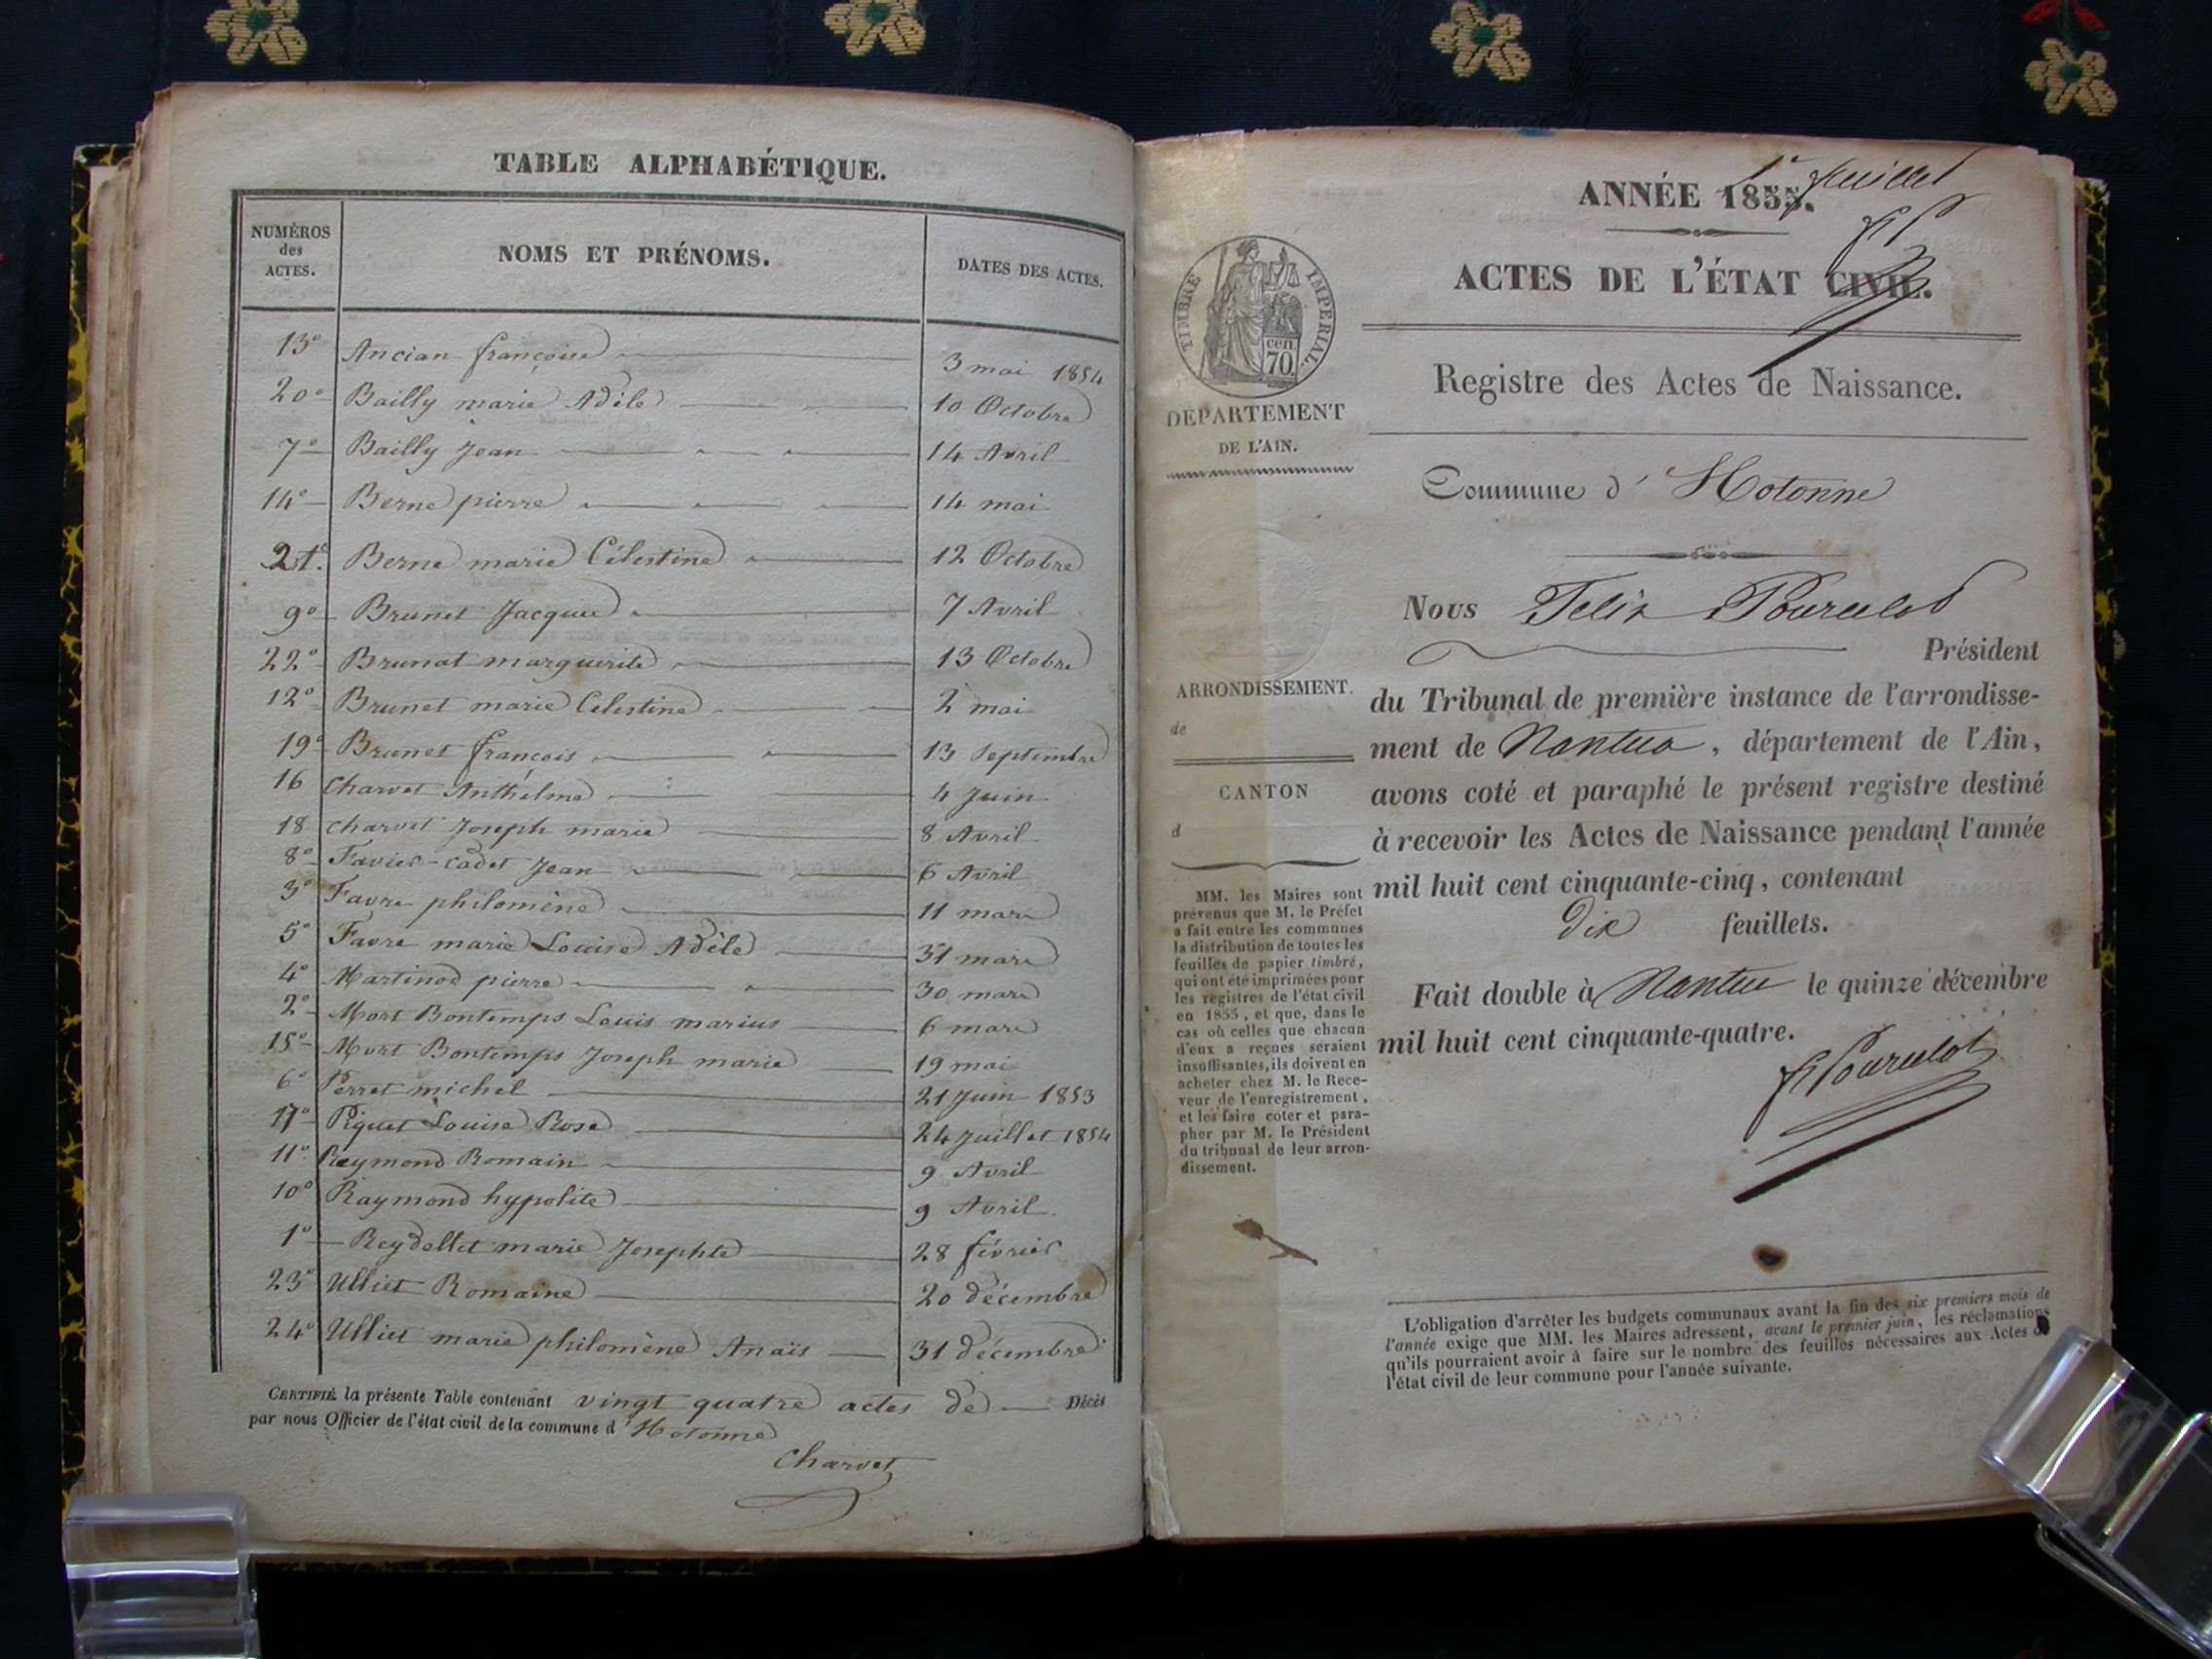 TABLE ALPHABÉTIQUE.
NUMÉROS des ACTES. NOMS ET PRÉNOMS. DATES DES ACTES.
13° Ancian françoise 3 mai 1854
20° Bailly marie Adèle 10 Octobre
7° Bailly Jean 14 Avril
14° Berne pierre 14 mai
21° Berne marie Célestine 12 Octobre
9° Brunet Jacques 7 Avril
22° Brunat marguerite 13 Octobre
12° Brunet marie Célestine 2 mai
19° Brunet françois 13 Septembre
16 Charvet Anthelme 4 Juin
18 charvet Joseph marie 8 Avril
8° Favier-cadet Jean 6 Avril
3° Favre philomène 11 mars
5° Favre marie Louise Adèle 31 mars
4° Martinod pierre 30 mars
2° Mort Bontemps Louis marius 6 mars
15° Mort Bontemps Joseph marie 19 mai
6° Perret michel 21 Juin 1853
17° Piquet Louise Rose 24 Juillet 1854
11° Reymond Romain 9 Avril
10° Raymond hypolite 9 Avril
1° Reydellet marie Josephte 28 février
23° Ulliet Romaine 20 décembre
24° Ulliet marie philomène Anaïs 31 décembre
CERTIFIÉ la présente Table contenant vingt quatre actes de Décès
par nous Officier de l'état civil de la commune d'Hotonne
Charvet
1er feuillet
ANNÉE 1855.
ACTES DE L'ÉTAT CIVIL.
TIMBRE IMPÉRIAL.
cen.
70.
DÉPARTEMENT
DE L'AIN.
Registre des Actes de Naissance.
Commune d'Hotonne
ARRONDISSEMENT.
de
CANTON
d
MM. les Maires sont
prévenus que M. le Préfet
a fait entre les communes
la distribution de toutes les
feuilles de papier timbré,
qui ont été imprimées pour
les registres de l'état civil
en 1855, et que, dans le
cas où celles que chacun
d'eux a reçues seraient
insuffisantes, ils doivent en
acheter chez M. le Rece-
veur de l'enregistrement,
et les faire coter et para-
pher par M. le Président
du tribunal de leur arron-
dissement.
Nous Felix Pourcelot
Président
du Tribunal de première instance de l'arrondisse-
ment de Nantua, département de l'Ain,
avons coté et paraphé le présent registre destiné
à recevoir les Actes de Naissance pendant l'année
mil huit cent cinquante-cinq, contenant
dix feuillets.
Fait double à Nantua le quinze décembre
mil huit cent cinquante-quatre.
F Pourcelot
L'obligation d'arrêter les budgets communaux avant la fin des six premiers mois de
l'année exige que MM. les Maires adressent, avant le premier juin, les réclamations
qu'ils pourraient avoir à faire sur le nombre des feuilles nécessaires aux Actes de
l'état civil de leur commune pour l'année suivante.